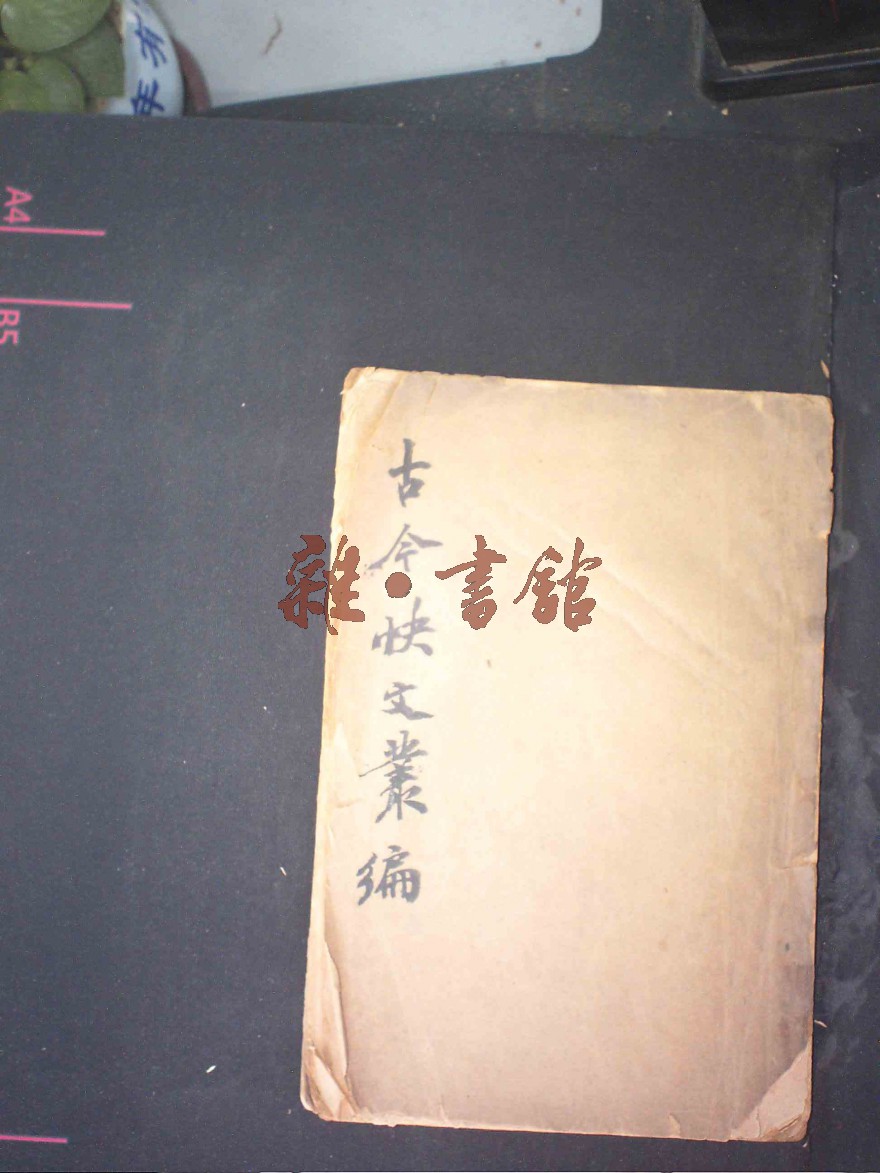 年有
A4
B5
古今快文叢編
雜·書館